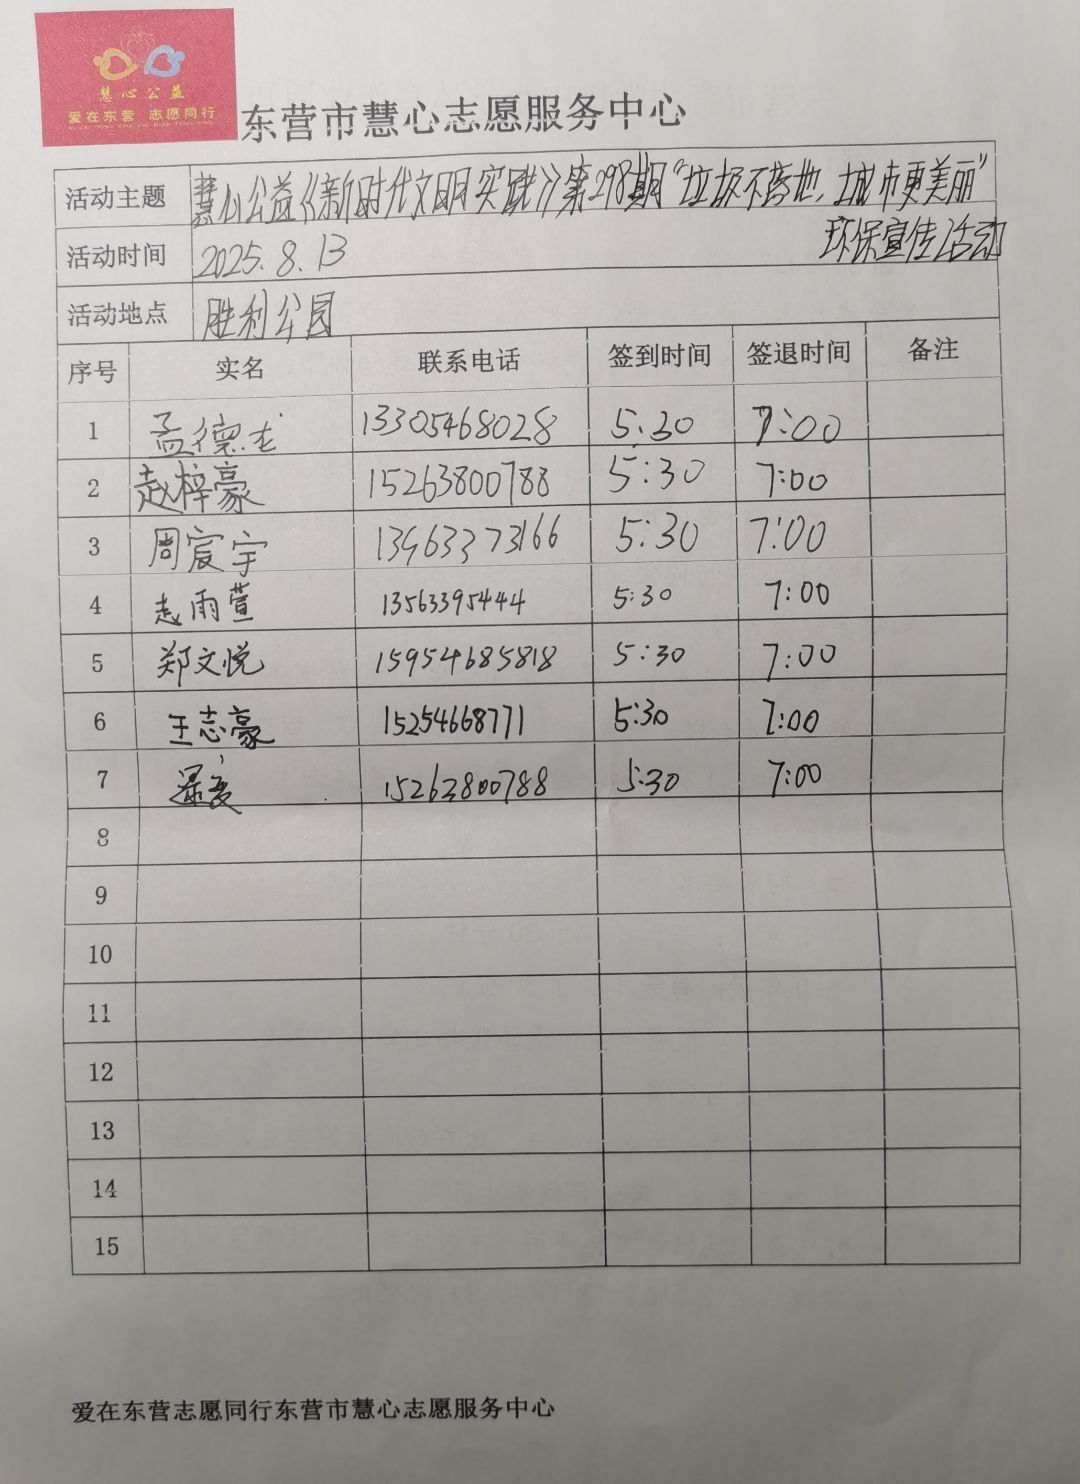 慧心公益
爱在东营 志愿同行
东营市慧心志愿服务中心
活动主题 慧心公益《新时代文明实践》第298期“垃圾不落地,城市更美丽”
环保宣传活动
活动时间 2025.8.13
活动地点 胜利公园
序号 实名 联系电话 签到时间 签退时间 备注
1 孟德龙 13305468028 5:30 7:00
2 赵梓豪 15263800788 5:30 7:00
3 周宸宇 13963373166 5:30 7:00
4 赵雨萱 13563395444 5:30 7:00
5 郑文悦 15954685818 5:30 7:00
6 王志豪 15254668771 5:30 7:00
7 15263800788 5:30 7:00
8
9
10
11
12
13
14
15
爱在东营志愿同行东营市慧心志愿服务中心